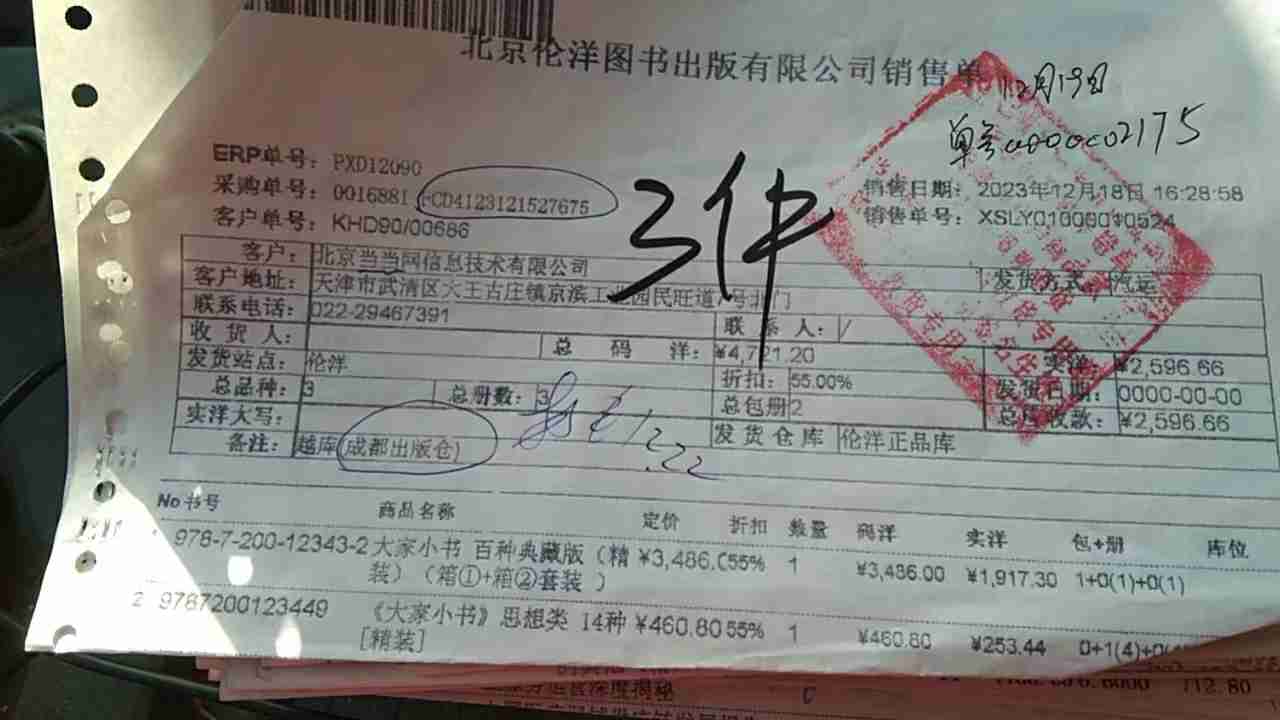 北京伦洋图书出版有限公司销售单
12月19日
单号
ERP单号: PXD12090
采购单号: 0016881 CD4123121527675
客户单号: KHD90/00686
3件
销售日期: 2023年12月18日 16:28:58
销售单号: XSLY01000010524
客户: 北京当当网信息技术有限公司 发货方式: 汽运
客户地址: 天津市武清区大王古庄镇京滨工 园民旺道 号北门
联系电话: 022-29467391 联系人: /
收货人: 总码洋: ¥4,721.20 实洋: ¥2,596.66
发货站点: 伦洋 折扣: 55.00% 发货日期: 0000-00-00
总品种: 3 总册数: 3 总包册 2 总应收款: ¥2,596.66
实洋大写: 发货仓库 伦洋正品库
备注: 越库(成都出版仓)
12.22
No 书号 商品名称 定价 折扣 数量 码洋 实洋 包+册 库位
1 978-7-200-12343-2 大家小书 百种典藏版(精 ¥3,486.0 55% 1 ¥3,486.00 ¥1,917.30 1+0(1)+0(1)
装)(箱①+箱②套装 )
2 9787200123449 《大家小书》思想类 14种 ¥460.80 55% 1 ¥460.80 ¥253.44 0+1(4)+0(
[精装]
深度揭秘
712.80